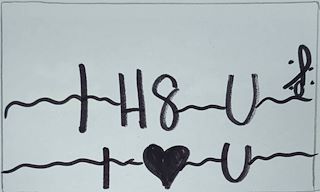 I H8 U
I ♥ U